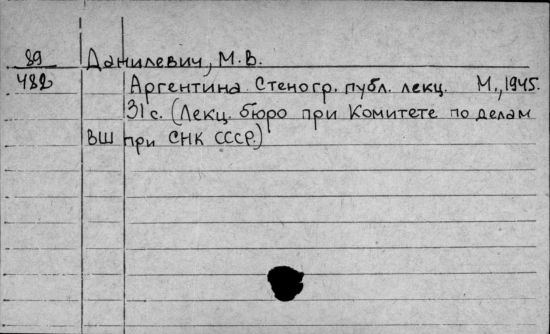 89 Данилевич, М.В.
482 Аргентина. Стеногр. публ. лекц. М., 1945.
31 с. (Лекц. бюро при Комитете по делам
ВШ при СНК СССР.)